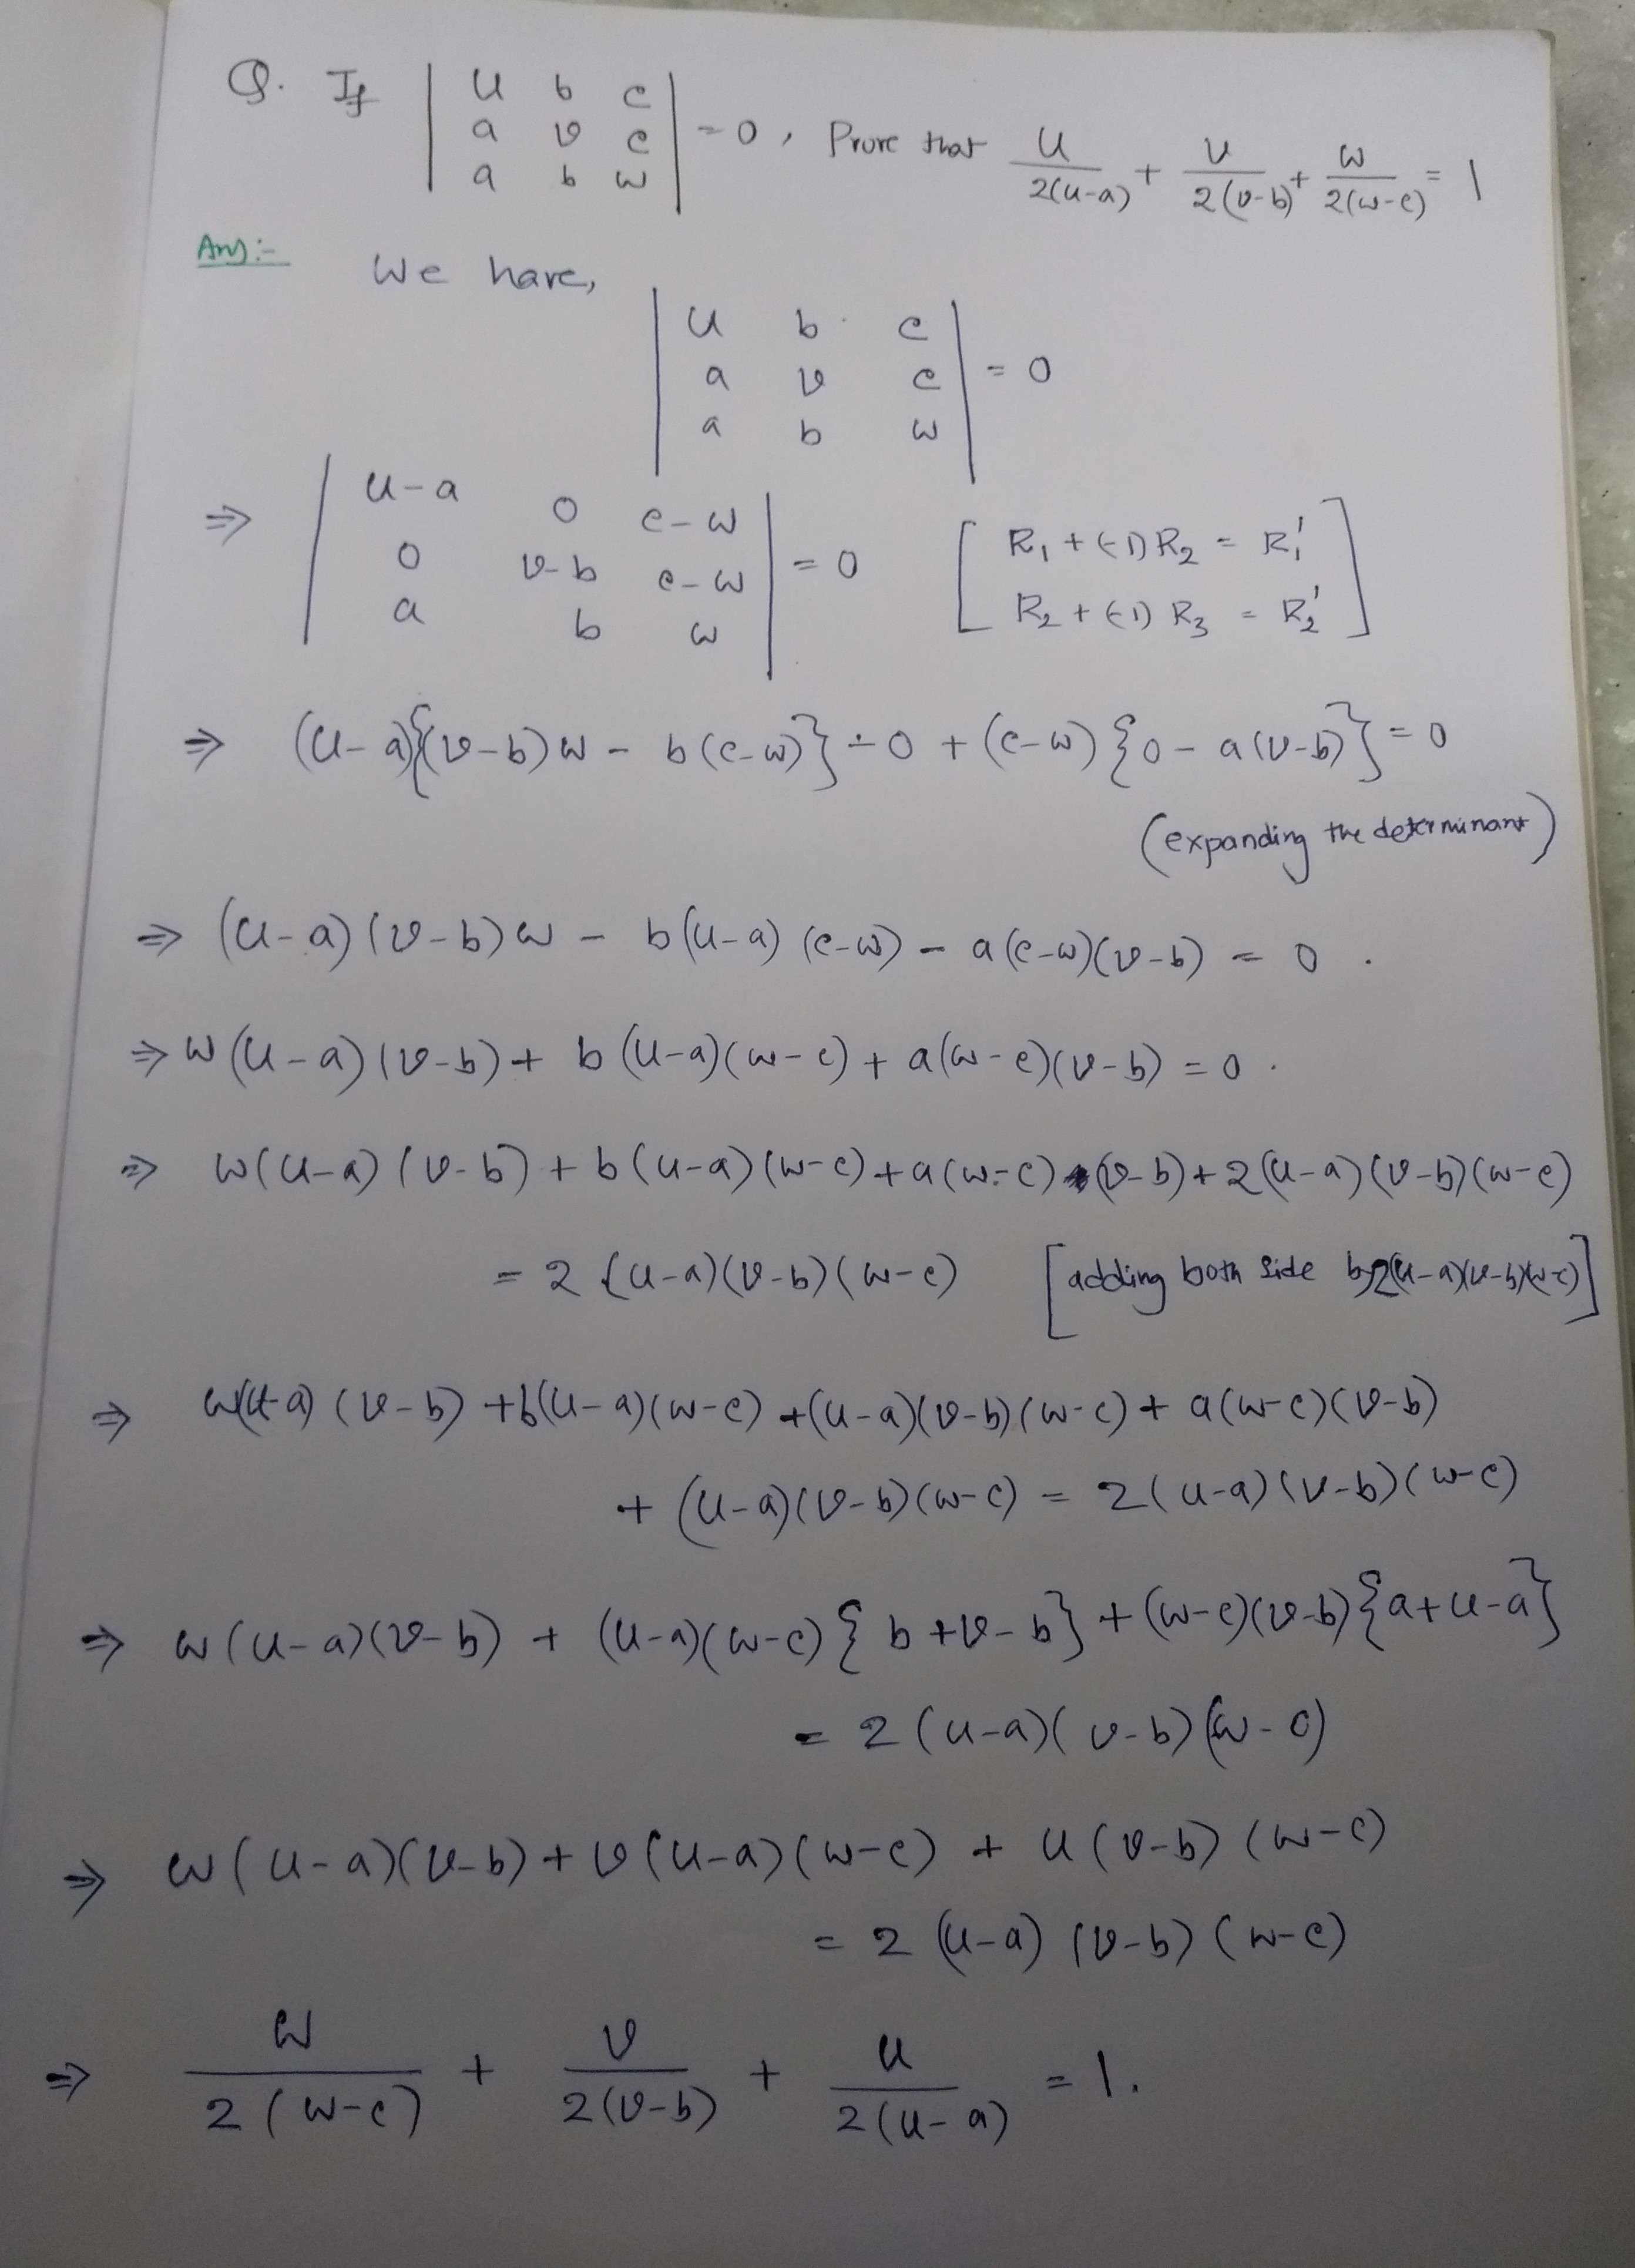 Q. If | u b c | = 0, Prove that u/2(u-a) + v/2(v-b) + w/2(w-c) = 1
| a v c |
| a b w |
Ans:- We have,
| u b c |
| a v c | = 0
| a b w |
⇒ | u-a 0 c-w |
| 0 v-b c-w | = 0 [ R₁ + (-1) R₂ = R₁'
| a b w | R₂ + (-1) R₃ = R₂' ]
⇒ (u-a){(v-b)w - b(c-w)} - 0 + (c-w){0 - a(v-b)} = 0
(expanding the determinant)
⇒ (u-a)(v-b)w - b(u-a)(c-w) - a(c-w)(v-b) = 0.
⇒ w(u-a)(v-b) + b(u-a)(w-c) + a(w-c)(v-b) = 0.
⇒ w(u-a)(v-b) + b(u-a)(w-c) + a(w-c)(v-b) + 2(u-a)(v-b)(w-c)
= 2(u-a)(v-b)(w-c) [adding both side by 2(u-a)(v-b)(w-c)]
⇒ w(u-a)(v-b) + b(u-a)(w-c) + (u-a)(v-b)(w-c) + a(w-c)(v-b)
+ (u-a)(v-b)(w-c) = 2(u-a)(v-b)(w-c)
⇒ w(u-a)(v-b) + (u-a)(w-c){b+v-b} + (w-c)(v-b){a+u-a}
= 2(u-a)(v-b)(w-c)
⇒ w(u-a)(v-b) + v(u-a)(w-c) + u(v-b)(w-c)
= 2(u-a)(v-b)(w-c)
⇒ w/2(w-c) + v/2(v-b) + u/2(u-a) = 1.